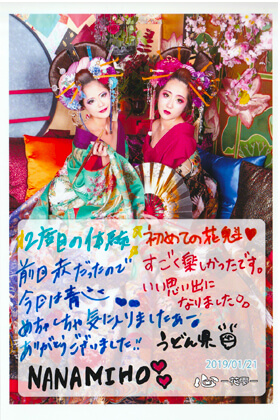 2度目の体験
前回赤だったので
今回は青
めちゃしゃ気に入りましたぁー
ありがとうございました!!
初めての花魁♥
すごく楽しかったです。
いい思い出に
なりました。
うどん県
NANAMIHO
2019/01/21